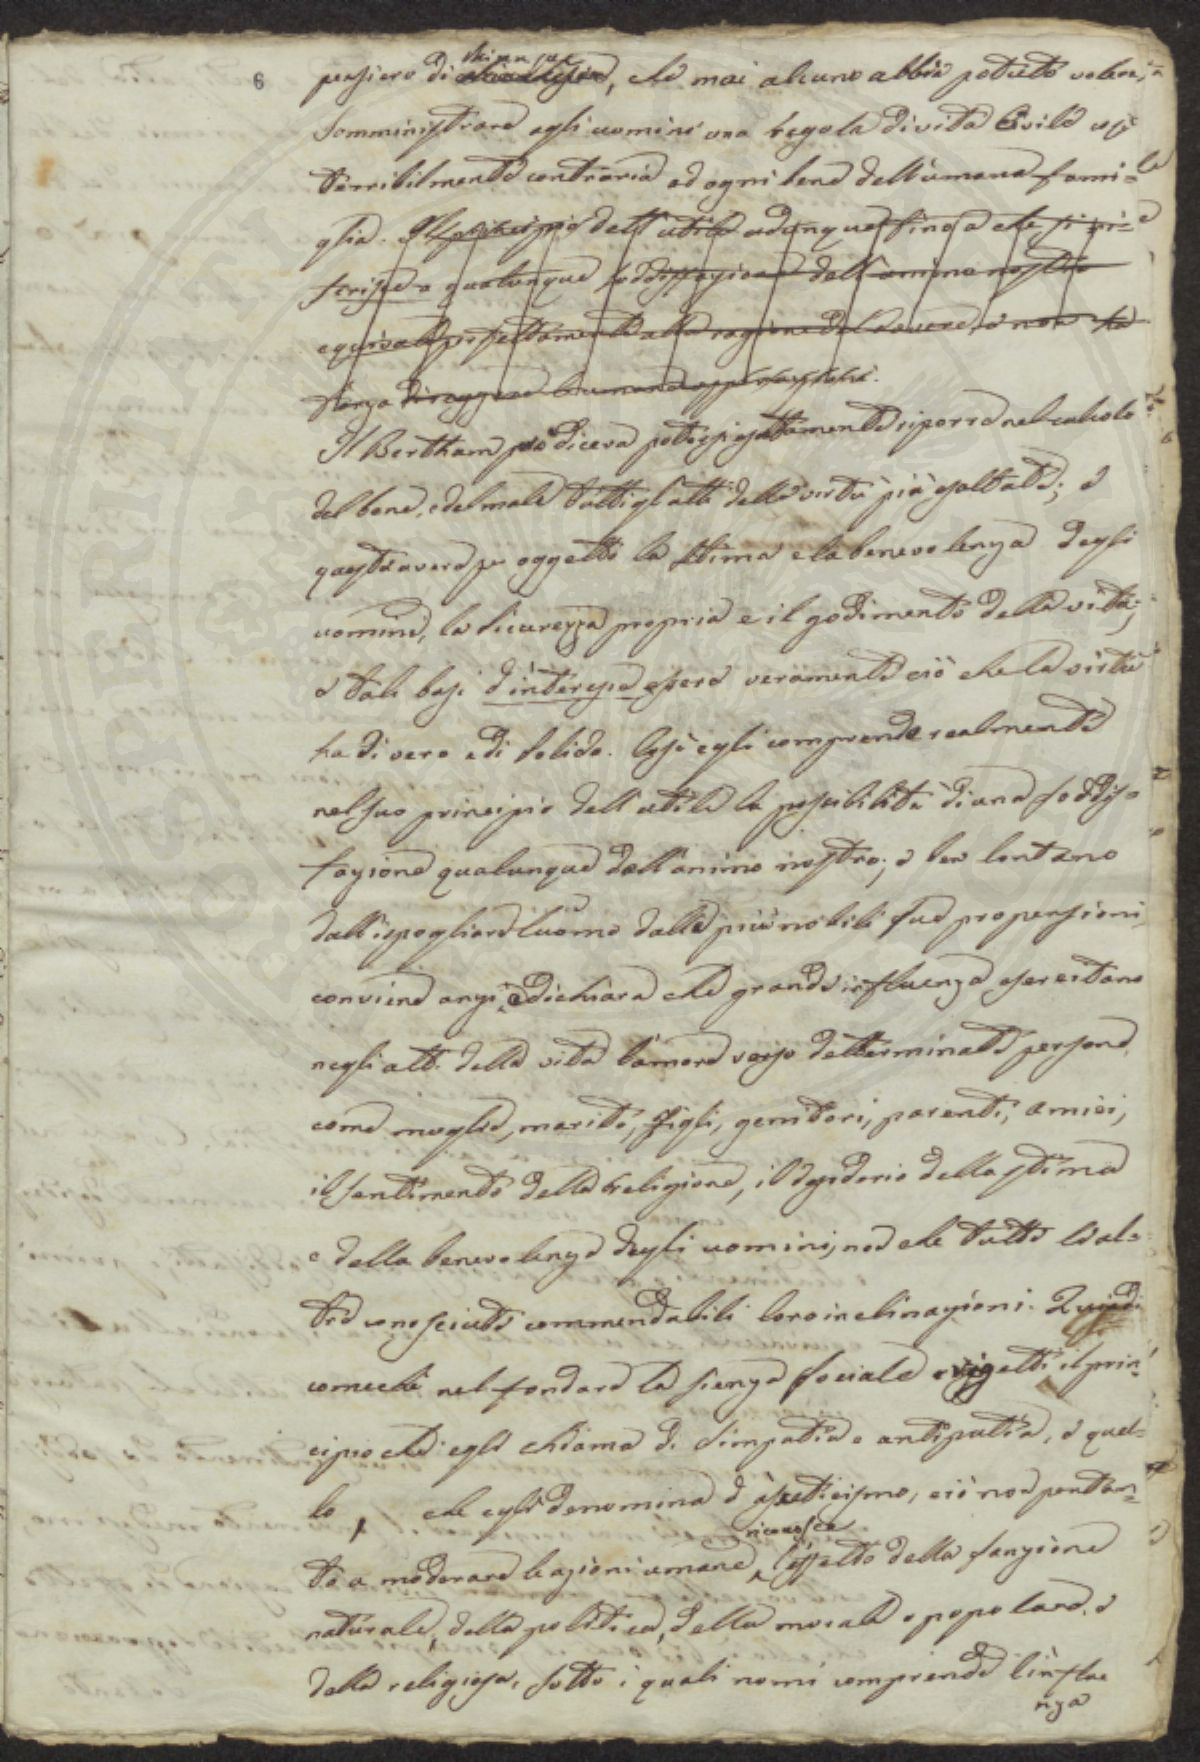 6
pensiero di chiunque, che mai alcuno abbia potuto voler
somministrare agli uomini una regola di vita Civile così
terribilmente contraria ad ogni bene dell'umana fami=
glia. Il principio dell'utile adunque fino a che si ri=
ferisce a qualunque soddisfazione dell'animo nostro
equivale perfettamente alla ragione del dovere, e non fa
senza di reggere le umane
Il Bertham diceva potersi esattamente riporre nel calcolo
del bene, e del male tutti gl'atti della virtù più esaltata; e
questa avere per oggetto la stima e la benevolenza degli
uomini, la sicurezza propria e il godimento della vita;
e tali basi d'interesse essere veramente ciò che la virtù
ha di vero e di solido. Così egli comprende realmente
nel suo principio dell'utile la possibilità di una soddis=
fazione qualunque dell'animo nostro; e ben lontano
dall'ispogliare l'uomo dalle più nobili sue propensioni,
conviene anzi, e dichiara che grande influenza esercitano
negli atti della vita l'amore verso determinate persone,
come moglie, marito, figli, genitori, parenti, amici,
il sentimento della religione, il desiderio della stima
e della benevolenza degli uomini, non che tutte le al=
tre conosciute commendabili loro inclinazioni. Quindi
comechè nel fondare la scienza sociale rigetti il prin=
cipio che egli chiama di simpatia e antipatia, e quel=
lo, che egli denomina d'asceticismo, ciò non pertan=
riconosce
to a moderare le azioni umane, l'effetto della sanzione
naturale, della politica, della morale o popolare, e
della religiosa, sotto i quali nomi comprende l'influe
nza